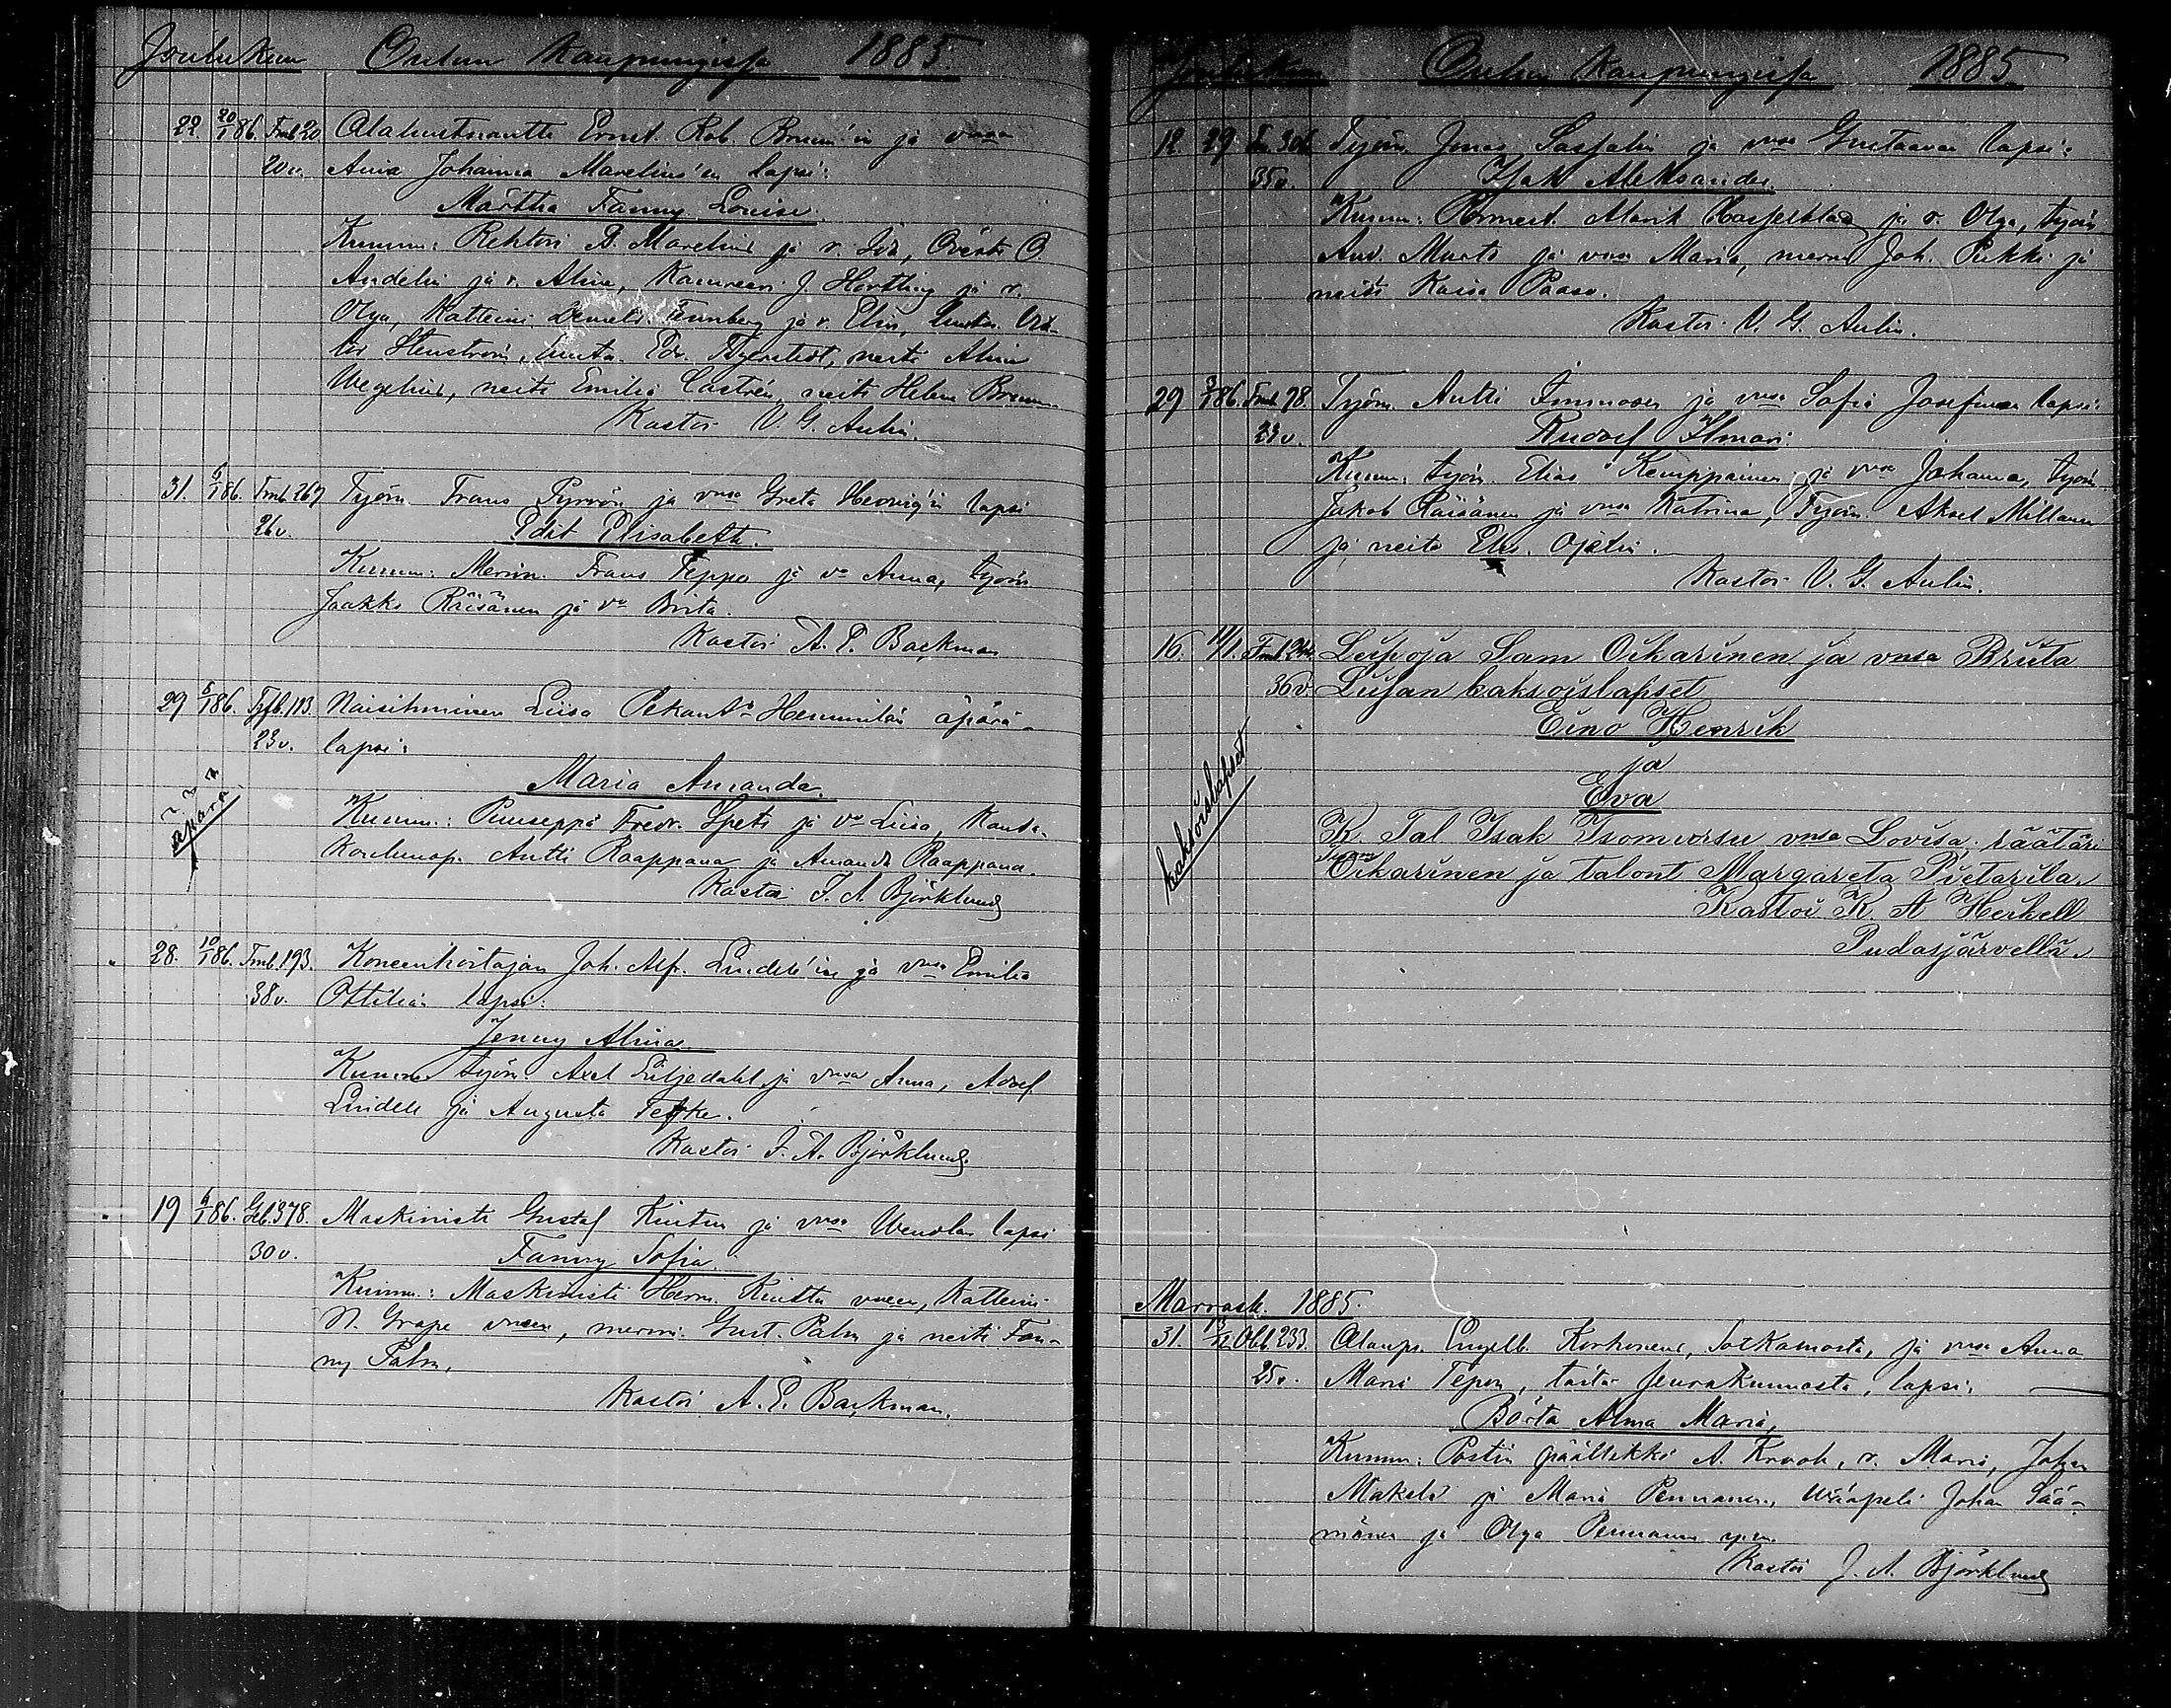 Jouluk:uu Oulun Kaupungissa 1885.
22. 20/1 86. Fmb 20 Alaluutnantti Ernst Rob. Brunn'in ja vmsa
20 v. Aina Johanna Marelius'en lapsi:
Märtha Fanny Louise.
Kumm: Rehtori B. Marelius ja r. Ida, Översti O.
Andelin ja r. Alma, Kamreeri J Hortling ja r.
Olga, Katteini Fennberg ja r. Elin,
Stenström, Edv. neiti Alma
Wegelius, neiti Emilia Castrén, neiti Helene Brunn.
Kastoi V. G. Aulin.
31. 6/1 86. Fmb 267 Työm Frans Pyrrön ja vmsa Greta Hedvig'in lapsi
26 v. Edit Elisabeth.
Kumm: Merim. Frans Teppo ja vo Anna, työm
Jaakko Räisänen ja vo Brita.
Kastoi A. E. Backman
29 6/1 86. Tyfb. 113. Naisihminen Liisa Pekant. Hemmilän äpärä-
23 v. lapsi:
Maria Amanda.
äpärä
Kumm.: Puuseppä Fredr. Spets ja vo Liisa, Kansa-
Koulunop. Antti Raappana ja Amanda Raappana.
Kastoi J. A. Björklund
28. 10/1 86. Fmb. 193. Koneenhoitajan Joh. Alf. Lindell'in ja vmsa Emilia
38 v. Ottilian lapsi:
Jenny Alina.
Kumm työm. Axel Liljedahl ja vmsa Anna, Adolf
Lindell ja Augusta Tefke.
Kastoi J. A. Björklund.
19 6/1 86. Gfb. 378. Maskinisti Gustaf Kiutun ja vmsa Wendlan lapsi
30 v. Fanny Sofia.
Kumm.: Maskinisti Herm. Kiuttu vmeen, Katteini
N. Grape vmeen, merim. Gust. Palm ja neiti Fan-
ny Palm.
Kastoi A. E. Backman.
Jouluk:uu Oulun Kaupungissa 1885
12 29 306 Työm. Jonas Sassalin ja vmsa Gustaavan lapsi:
35 v. Isak Aleksander.
Kumm: Alarik Hasselblad ja r. Olga, työm.
And. Musto ja vmsa Maria, merim Joh. Pukki ja
neiti Kaisa Paaso.
Kastoi V. G. Aulin.
29 3/1 86. Fmb 98. Työm. Antti Immosen ja vmsa Sofia Josefinan lapsi:
23 v. Rudolf Ilmari.
Kumm. työm. Elias Kemppainen ja vmsa Johanna, työm
Jakob Räisänen ja vmsa Katrina, Työm. Aksel Millanen
ja neito Elis. Ojalin.
Kastoi V. G. Aulin.
16. 11/1. Fmb 244 Leipoja Sam Oikarinen ja vmsa Briita
36 v. Liisan kaksoislapset
Eino Henrik
ja
Eva
kaksoislapset
K. Tal Isak Isomursu vmsa Lovisa. räätäri
Oikarinen ja talont Margareta Pietarila.
Kastoi K. A Heikell
Pudasjärvellä.
Marrask. 1885.
31. 13/12 Obl. 233. Alaups. Engelb. Korhonen, Sotkamosta, ja vmsa Anna
25 v. Maria Tepon, tästä seurakunnasta, lapsi.
Börta Alma Maria,
Kumm: Postin päällikkö A. Krook, r. Maria, Johan
Makela ja Maria Pennanen, wääpeli Johan Sää-
mänen ja Olga Pennanen ynn.
Kastoi J. A. Björklund